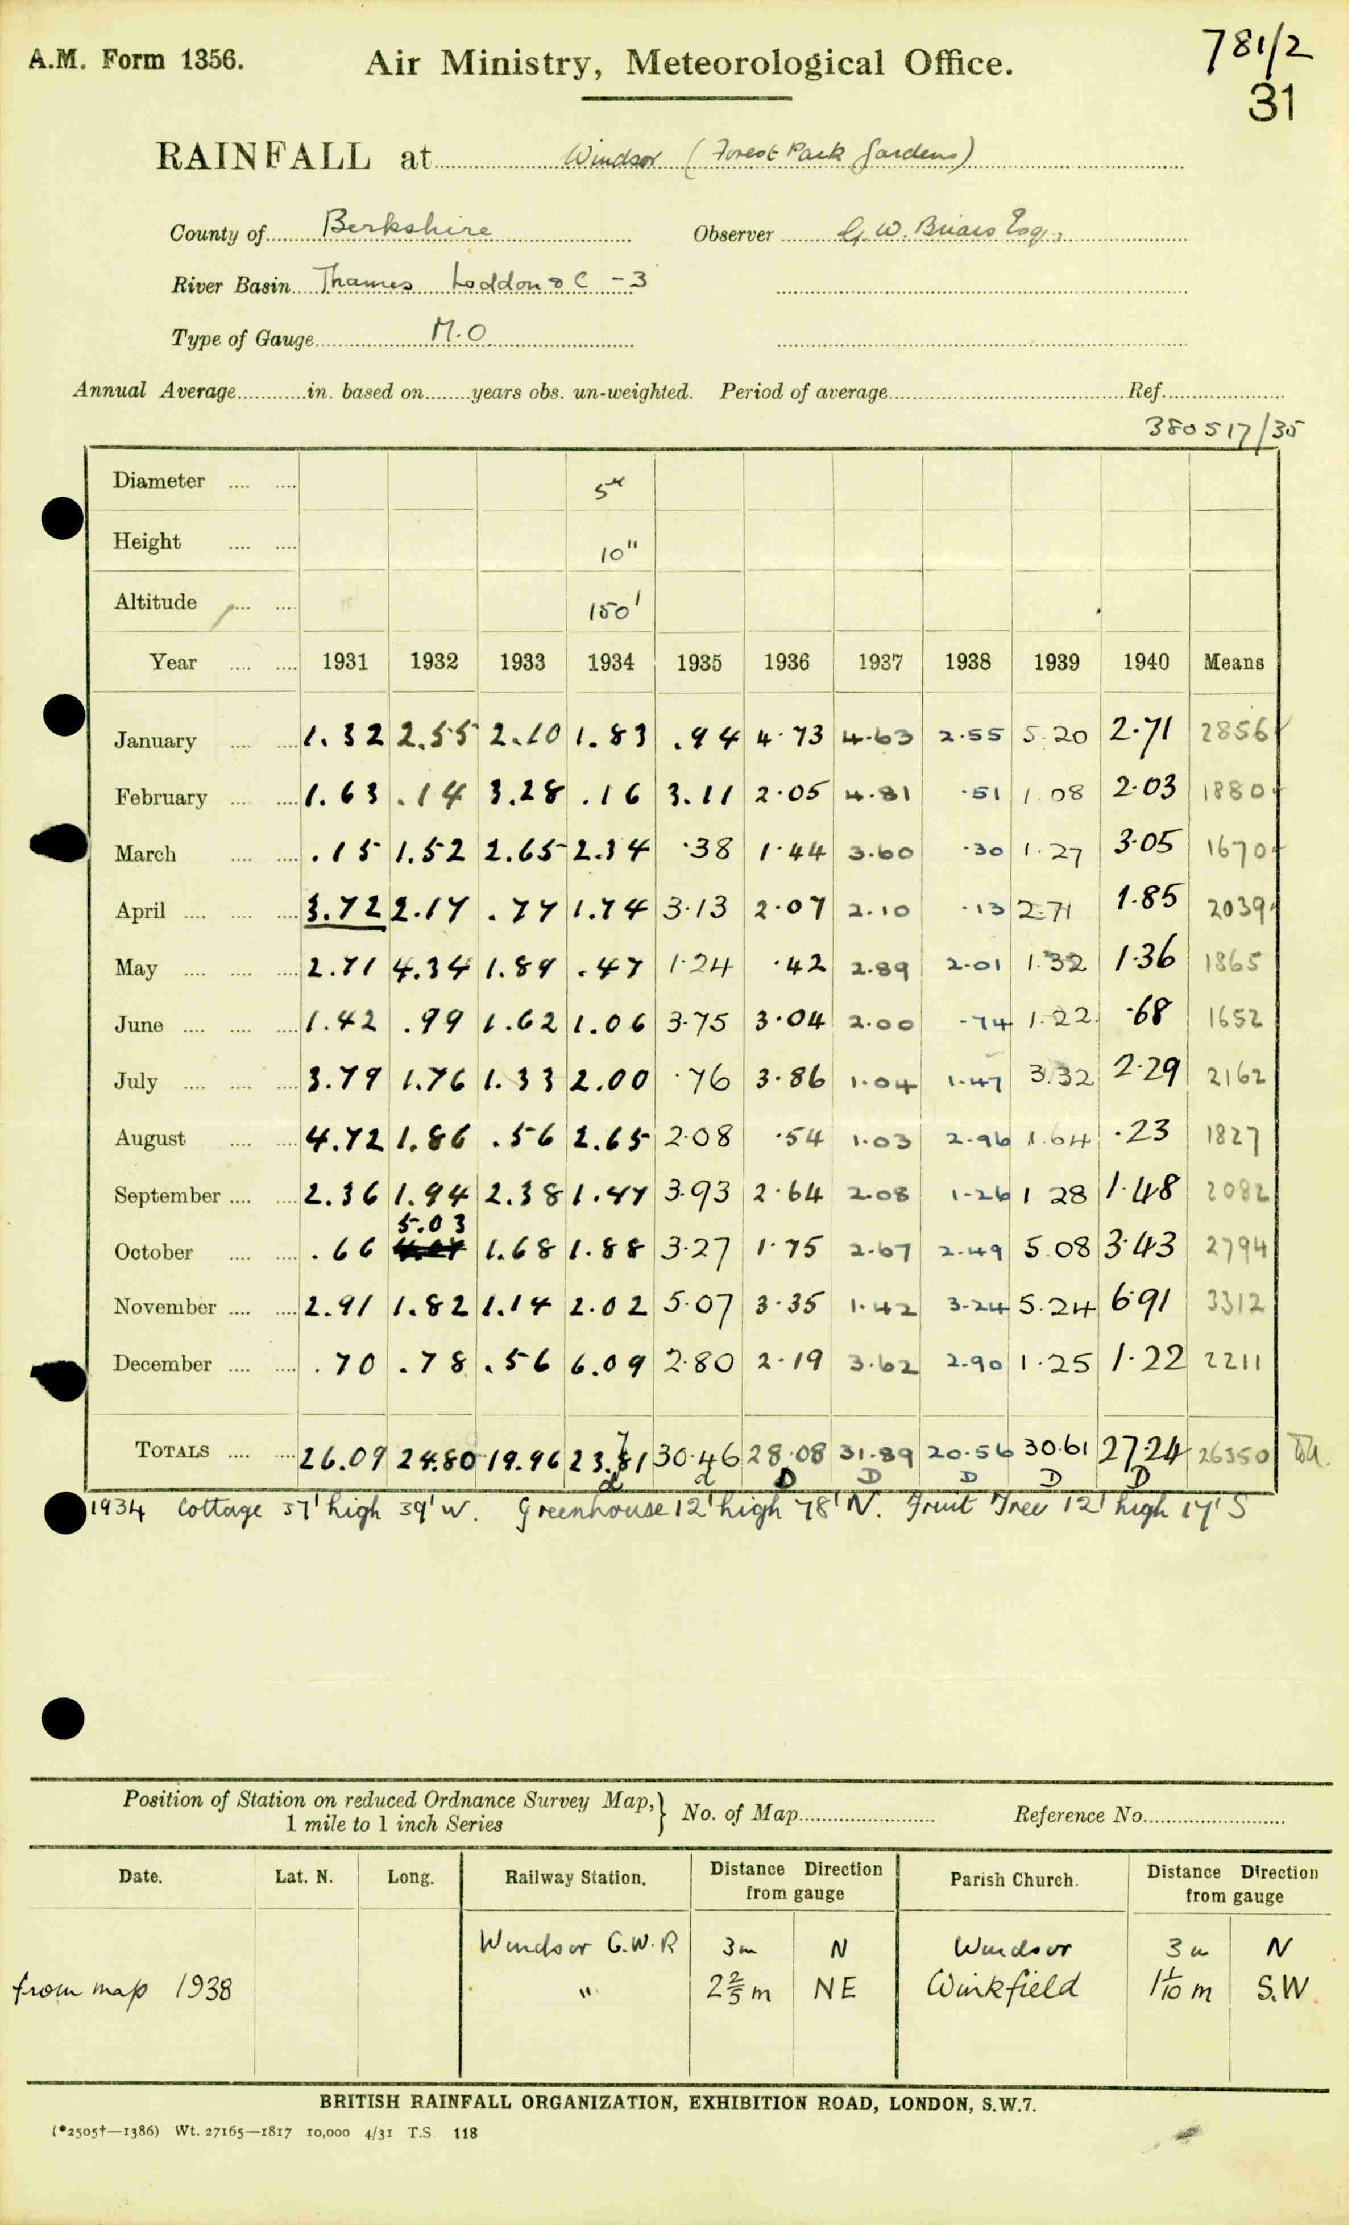 A.M. Form 1356.
Air Ministry, Meteorological Office.
781/2
31
RAINFALL at Windsor (Forest Park Gardens)
County of Berkshire Observer G. W. Briars Esq.,
River Basin Thames Loddon &C -3
Type of Gauge M.O
Annual Average in. based on years obs. un-weighted. Period of average Ref.
380517/35
Diameter 5"
Height 10"
Altitude 150'
Year 1931 1932 1933 1934 1935 1936 1937 1938 1939 1940 Means
January 1.32 2.55 2.10 1.83 .94 4.73 4.63 2.55 5.20 2.71 2856
February 1.63 .14 3.28 .16 3.11 2.05 4.81 .51 1.08 2.03 1880
March .15 1.52 2.65 2.34 .38 1.44 3.60 .30 1.27 3.05 1670
April 3.72 2.17 .77 1.74 3.13 2.07 2.10 .13 2.71 1.85 2039
May 2.71 4.34 1.89 .47 1.24 .42 2.89 2.01 1.32 1.36 1865
June 1.42 .99 1.62 1.06 3.75 3.04 2.00 .74 1.22 .68 1652
July 3.79 1.76 1.33 2.00 .76 3.86 1.04 1.47 3.32 2.29 2162
August 4.72 1.86 .56 2.65 2.08 .54 1.03 2.96 1.64 .23 1827
September 2.36 1.94 2.38 1.47 3.93 2.64 2.08 1.26 1.28 1.48 2082
October .66 5.03 1.68 1.88 3.27 1.75 2.67 2.49 5.08 3.43 2794
November 2.91 1.82 1.14 2.02 5.07 3.35 1.42 3.24 5.24 6.91 3312
December .70 .78 .56 6.09 2.80 2.19 3.62 2.90 1.25 1.22 2211
TOTALS 26.09 24.80 19.96 23.71 30.46 28.08 31.89 20.56 30.61 27.24 26350
D D D D D
1934 Cottage 37' high 39' W. Greenhouse 12' high 78' N. Fruit Tree 12' high 17' S
Position of Station on reduced Ordnance Survey Map, } No. of Map Reference No.
1 mile to 1 inch Series
Date. Lat. N. Long. Railway Station. Distance Direction from gauge Parish Church. Distance Direction from gauge
Windsor G.W.R 3m N Windsor 3m N
from map 1938 " 2 2/5 m NE Winkfield 1 1/10 m S.W.
BRITISH RAINFALL ORGANIZATION, EXHIBITION ROAD, LONDON, S.W.7.
(*2505†—1386) Wt. 27165—1817 10,000 4/31 T.S. 118